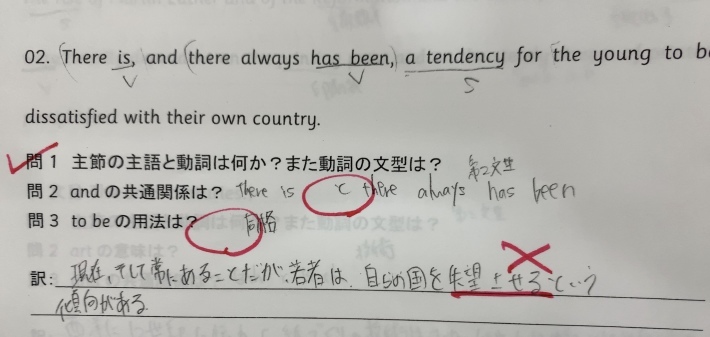 02. There is, and there always has been, a tendency for the young to b
V V S
dissatisfied with their own country.
問1 主節の主語と動詞は何か?また動詞の文型は? 第2文型
問2 and の共通関係は? There is と there always has been
問3 to be の用法は? 同格
訳: 現在、そして常にあることだが、若者は、自らの国を失望させるという
傾向がある